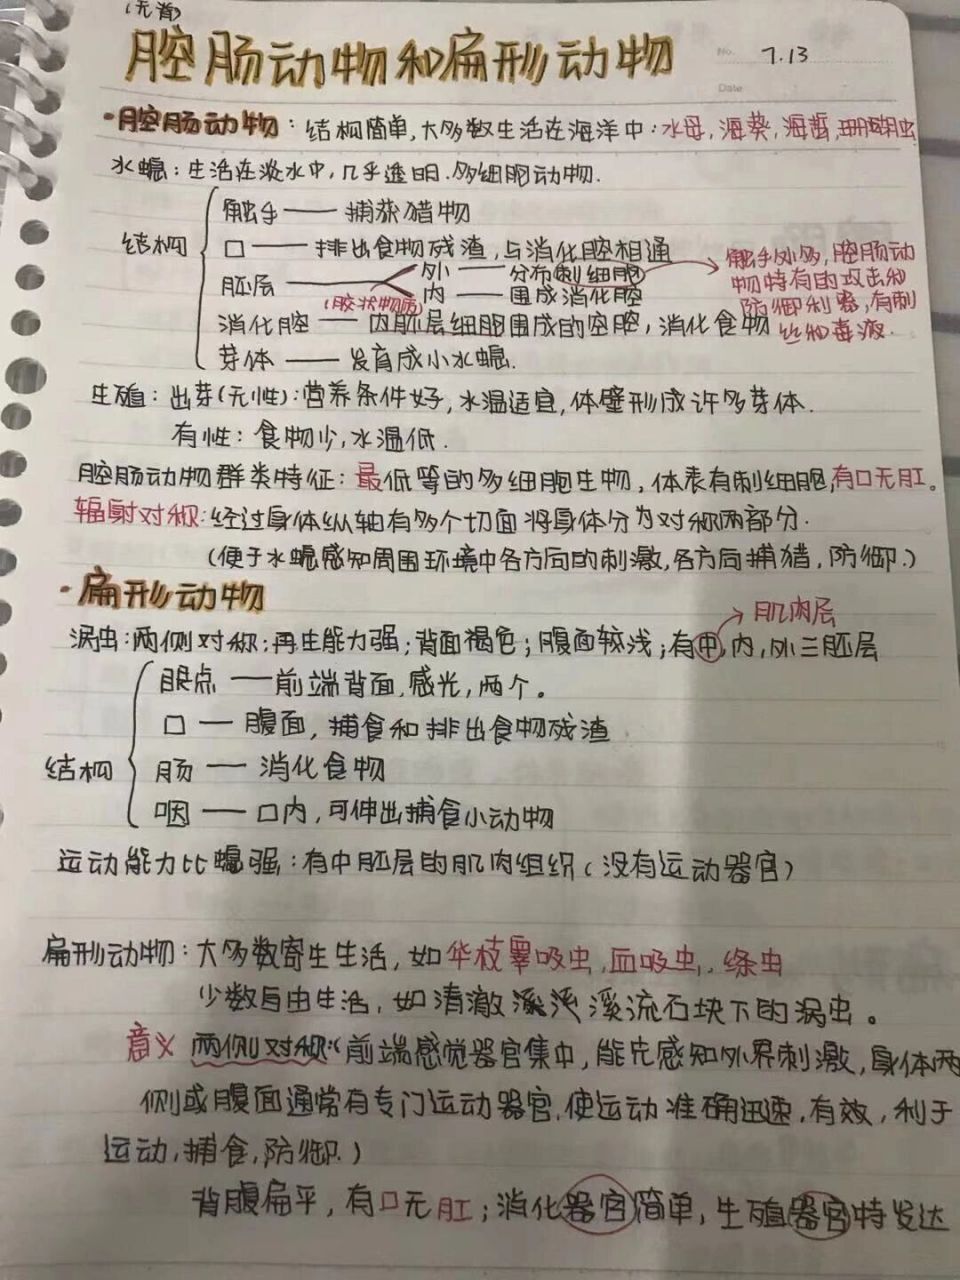 (无脊)
腔肠动物和扁形动物
No. 7.13
Date
·腔肠动物：结构简单,大多数生活在海洋中：水母,海葵,海蜇,珊瑚虫
水螅：生活在淡水中,几乎透明.多细胞动物.
结构
触手——捕获猎物
口——排出食物残渣,与消化腔相通
胚层
外——分布刺细胞
(胶状物质)
内——围成消化腔
触手处多,腔肠动
物特有的攻击和
防御利器,有刺
丝和毒液.
消化腔——内胚层细胞围成的空腔,消化食物
芽体——发育成小水螅.
生殖：出芽(无性):营养条件好,水温适宜,体壁形成许多芽体.
有性：食物少,水温低.
腔肠动物群类特征：最低等的多细胞生物,体表有刺细胞,有口无肛。
辐射对称:经过身体纵轴有多个切面将身体分为对称两部分.
(便于水螅感知周围环境中各方向的刺激,各方向捕猎,防御.)
·扁形动物
肌肉层
涡虫:两侧对称;再生能力强;背面褐色;腹面较浅;有中,内,外三胚层
结构
眼点——前端背面,感光,两个。
口—腹面,捕食和排出食物残渣
肠—消化食物
咽—口内,可伸出捕食小动物
运动能力比螅强：有中胚层的肌肉组织(没有运动器官)
扁形动物：大多数寄生生活,如华枝睾吸虫,血吸虫,绦虫
少数自由生活,如清澈溪流石块下的涡虫。
意义 两侧对称:(前端感觉器官集中,能先感知外界刺激,身体两
侧或腹面通常有专门运动器官,使运动准确迅速,有效,利于
运动,捕食,防御.)
背腹扁平,有口无肛;消化器官简单,生殖器官特发达